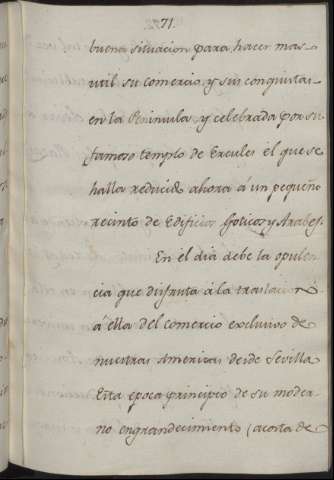 71.
buena situacion para hacer mas
util su comercio, y sus conquistas
en la Peninsula, y celebrada por su
famoso templo de Ercules el que se
halla reducido ahora á un pequeño
recinto de Edificios Goticos, y Arabes.
En el dia debe la opulen
cia que disfruta á la traslacion
á ella del comercio exclusivo de
nuestras Americas desde Sevilla
Esta epoca principio de su moder-
no engrandecimiento (acosta de